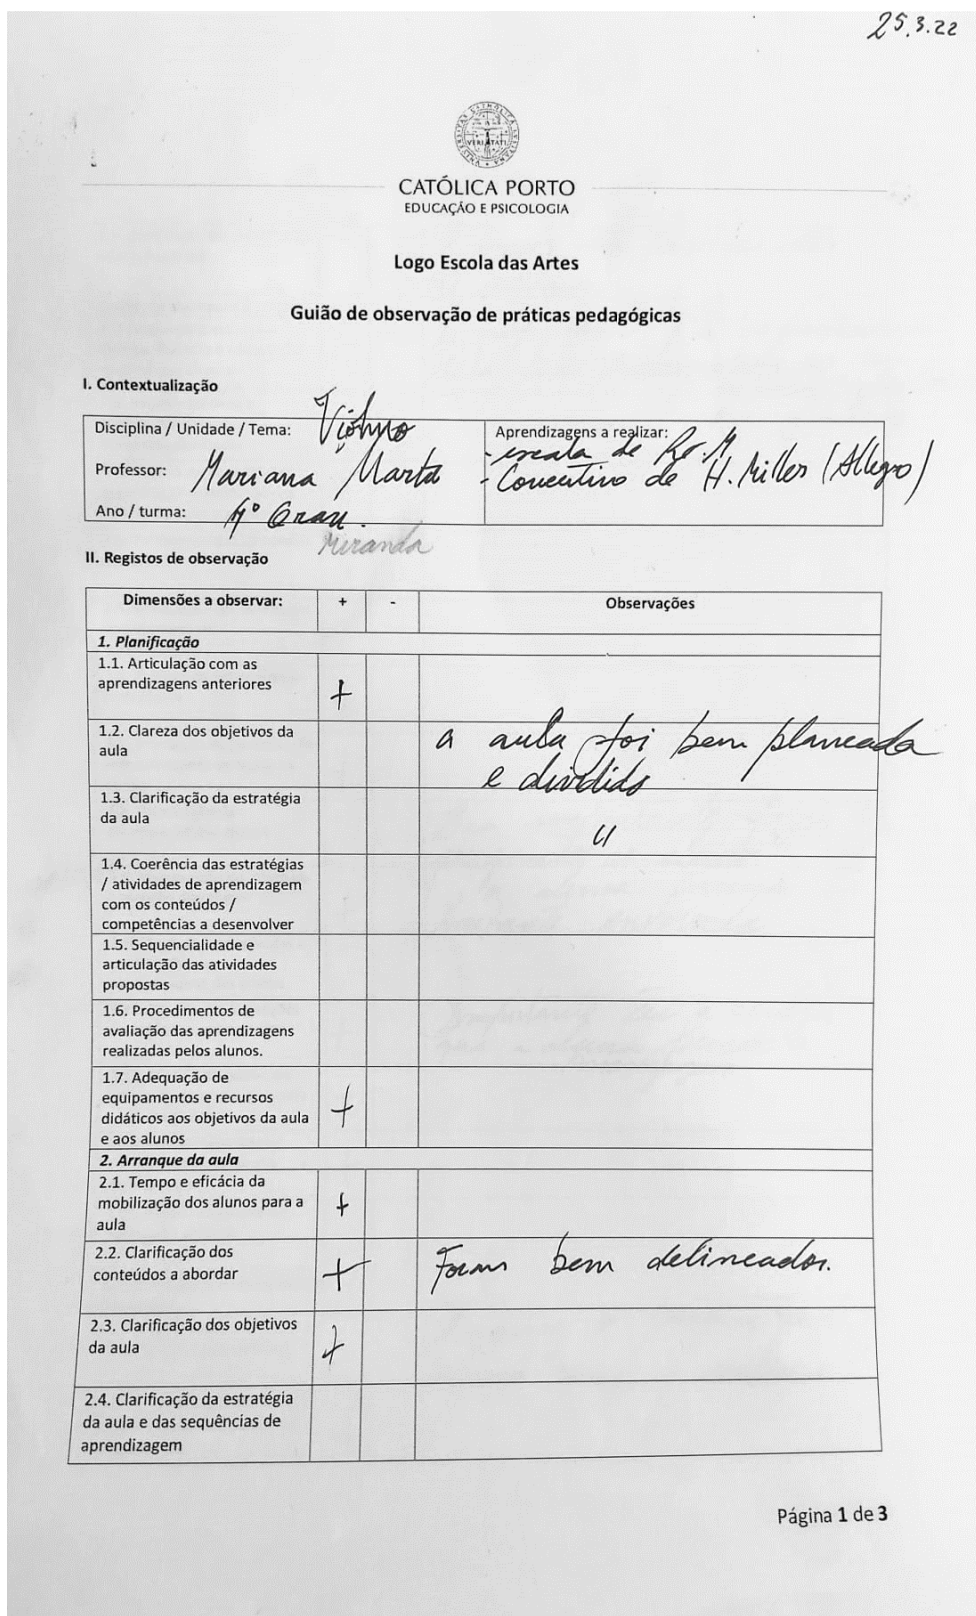 25.3.22
VERITATI
CATÓLICA PORTO
EDUCAÇÃO E PSICOLOGIA
Logo Escola das Artes
Guião de observação de práticas pedagógicas
I. Contextualização
Disciplina / Unidade / Tema: Violino
Professor: Mariana Marta
Ano / turma: 4º Grau.
Miranda
Aprendizagens a realizar:
- escala de Ré M
- Concertino de H. Miller (Allegro)
II. Registos de observação
Dimensões a observar: + - Observações
1. Planificação
1.1. Articulação com as
aprendizagens anteriores +
1.2. Clareza dos objetivos da
aula
a aula foi bem planeada
e dividido
1.3. Clarificação da estratégia
da aula
"
1.4. Coerência das estratégias
/ atividades de aprendizagem
com os conteúdos /
competências a desenvolver
1.5. Sequencialidade e
articulação das atividades
propostas
1.6. Procedimentos de
avaliação das aprendizagens
realizadas pelos alunos.
1.7. Adequação de
equipamentos e recursos
didáticos aos objetivos da aula +
e aos alunos
2. Arranque da aula
2.1. Tempo e eficácia da
mobilização dos alunos para a +
aula
2.2. Clarificação dos
conteúdos a abordar + Foram bem delineados.
2.3. Clarificação dos objetivos
da aula +
2.4. Clarificação da estratégia
da aula e das sequências de
aprendizagem
Página 1 de 3